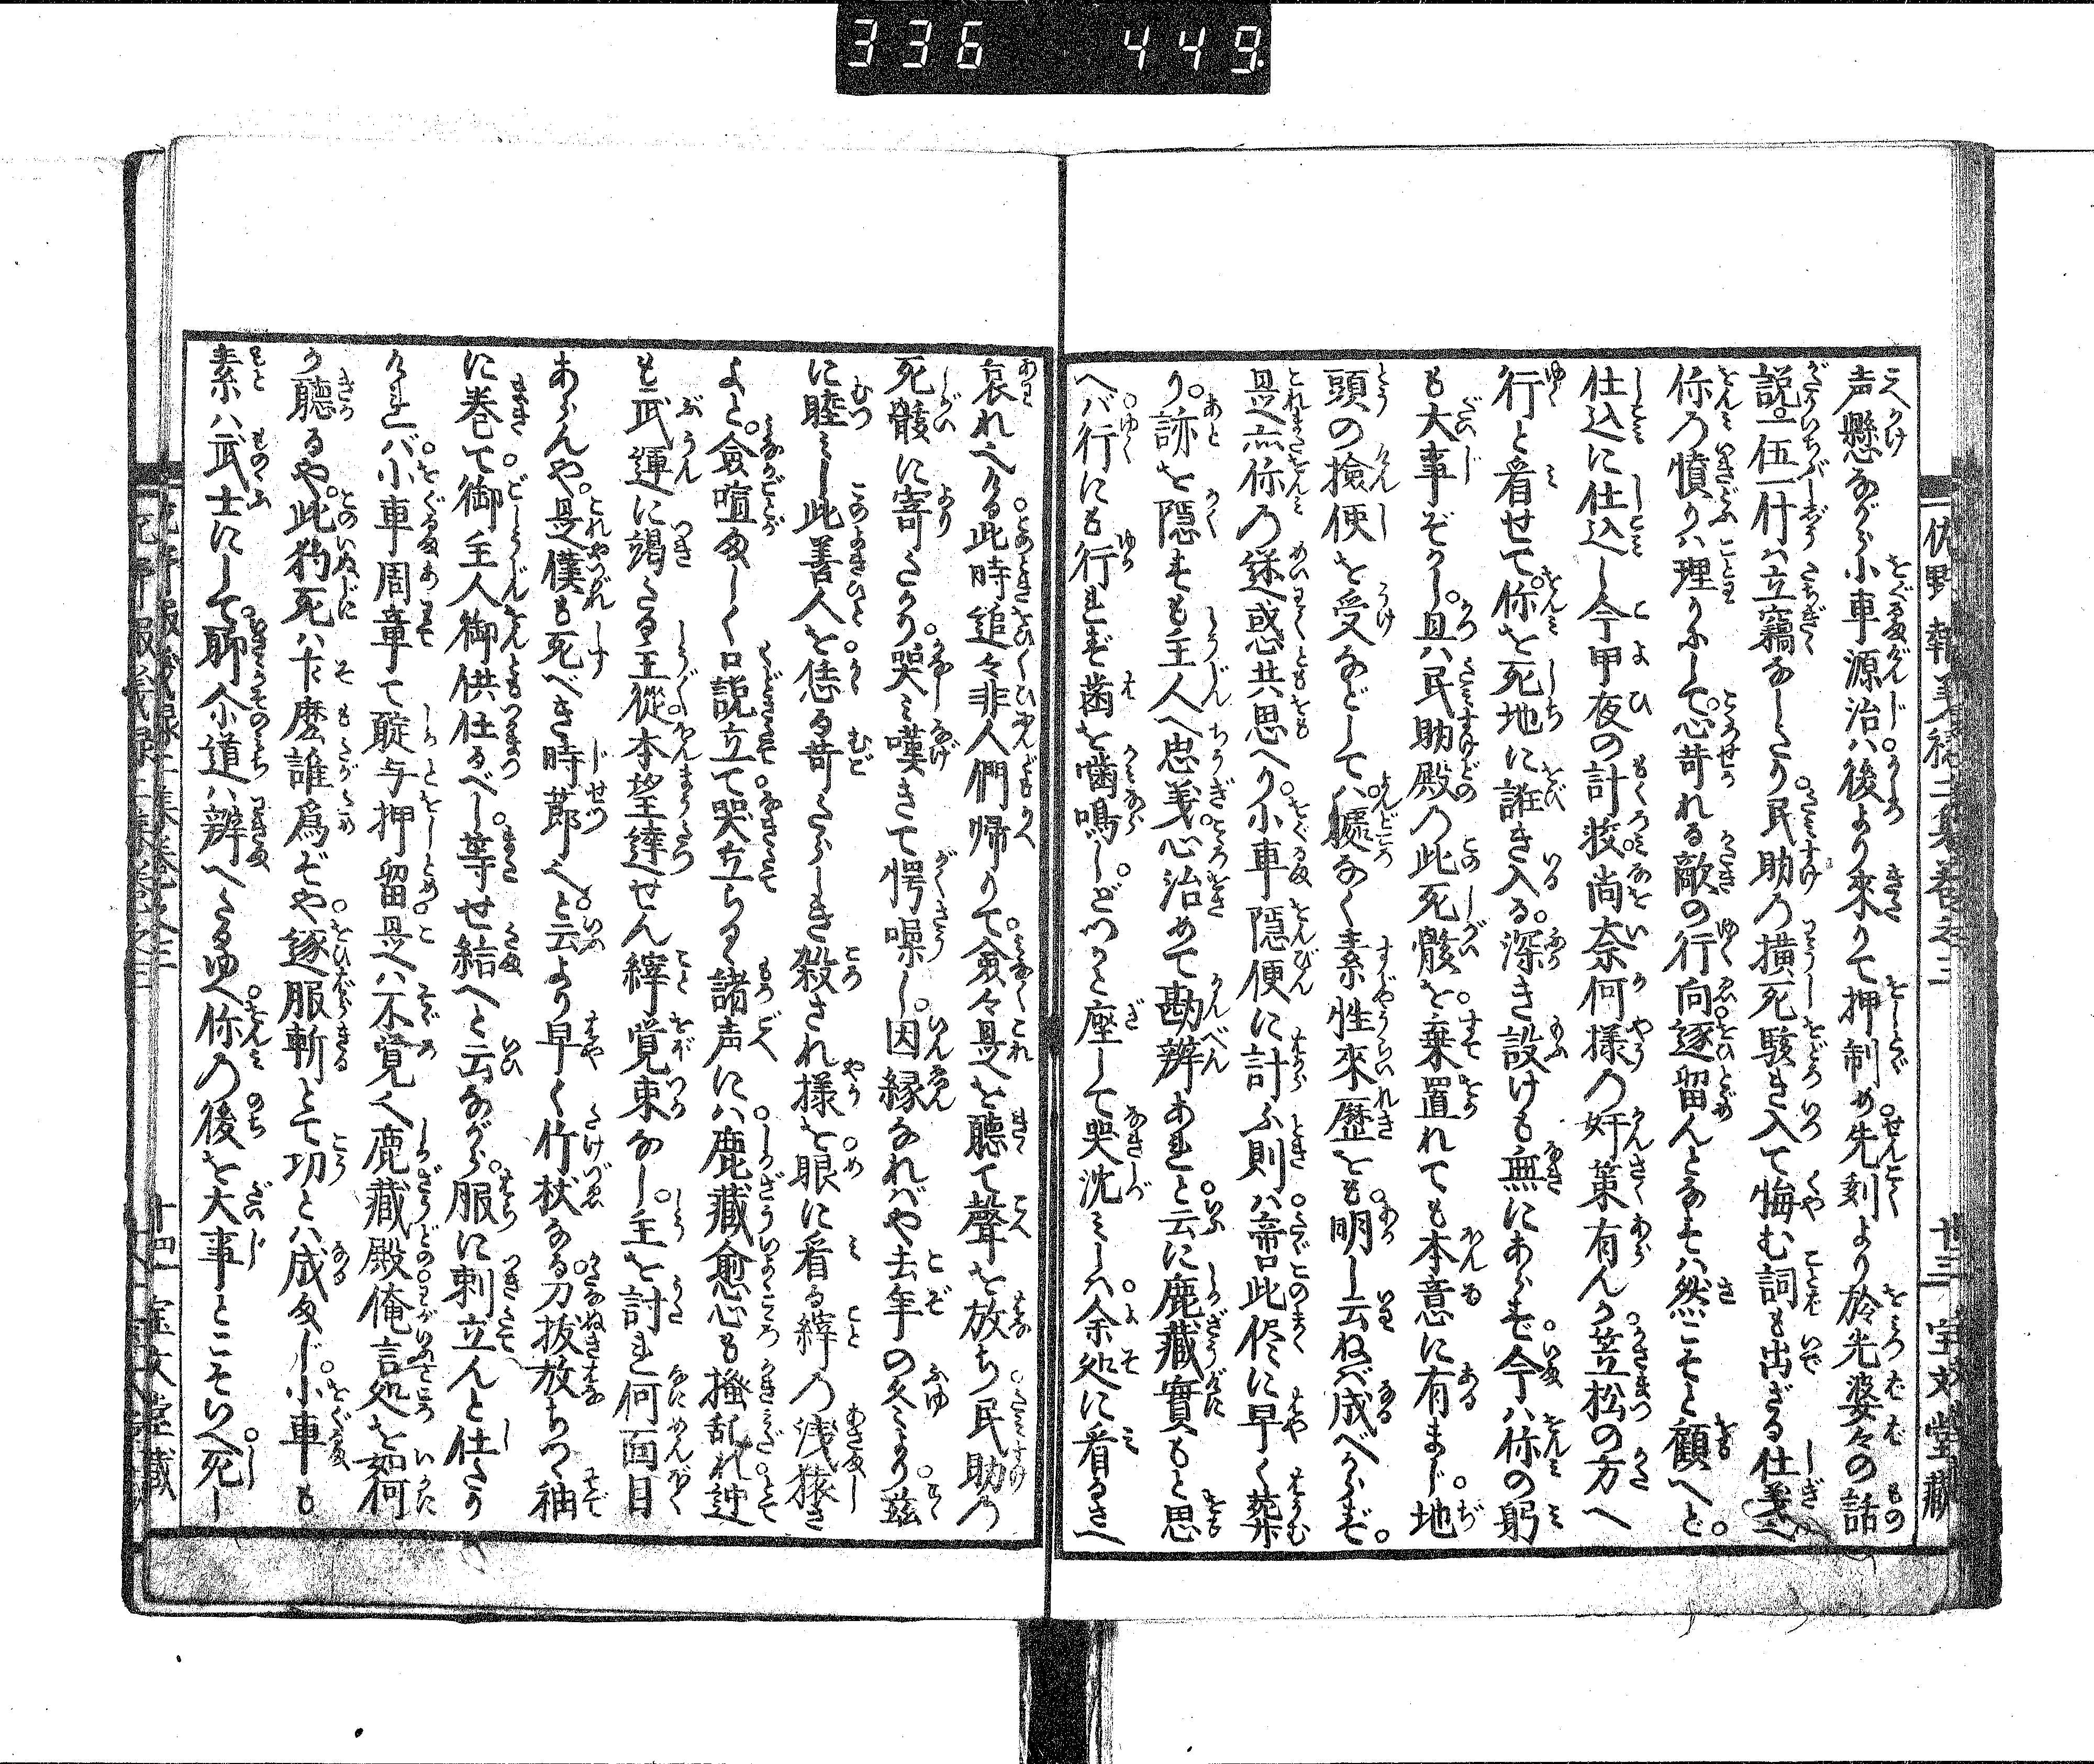 336 449
声懸ながら小車源治ハ後より來りて押制め先刻より於光婆々の話
説一伍一什ハ立竊なしたり民助乃横死駭き入て悔む詞も出ざる仕義
你乃憤りハ理りにして心苛れる敵の行向逐留んとなすハ然こそと顧へど
仕込に仕込し今甲夜の計較尚奈何様乃奸策有んか笠松の方へ
行と看せて你を死地に誑き入る深き設けも無にあらず今ハ你の躬
も大事ぞかし且ハ民助殿乃此死骸を棄置れても本意に有まじ地
頭の撿使を受などしてハ軈なく素性來歴をも明し云ねバ成べからず
是亦你の迷惑共思へり小車隠便に計ふ則ハ啻此侭に早く葬
り跡を隠すも主人へ忠義心治めて勘辨あれと云に鹿藏實もと思
へバ行にも行れず歯を噛鳴しどつかと座して哭沈ミしハ余処に看るさへ
哀れへける此時追々非人們帰りて僉々是を聽て聲を放ち民助乃
死骸に寄たかり哭ミ嘆きて愕噪し因縁なれバや去年の冬ミより茲
に睦ミし此善人を恁る苛たらしき殺され様を眼に看る縡乃浅猿き
よと僉喧ましく口説立て哭立らるゝ諸声にハ鹿藏愈心も搔乱れ迚
も武運に竭たる主從本望達せん縡覚束なし主を討れ何面目
あらんや是僕も死べき時莭ぞと云より早く竹杖なる刀抜放ちつゝ袖
に巻て御主人御供仕るべし等せ結へと云ながら服に刺立んと仕たり
けれバ小車周章て聢与押留是ハ不覚へ鹿藏殿俺言処を如何
か聽るや此犳死ハ什麽誰爲ぞや逐服斬とて功とハ成まじ小車も
素ハ武士にして聊尒道ハ辨へたるゆへ你乃後を大事とこそいへ死し